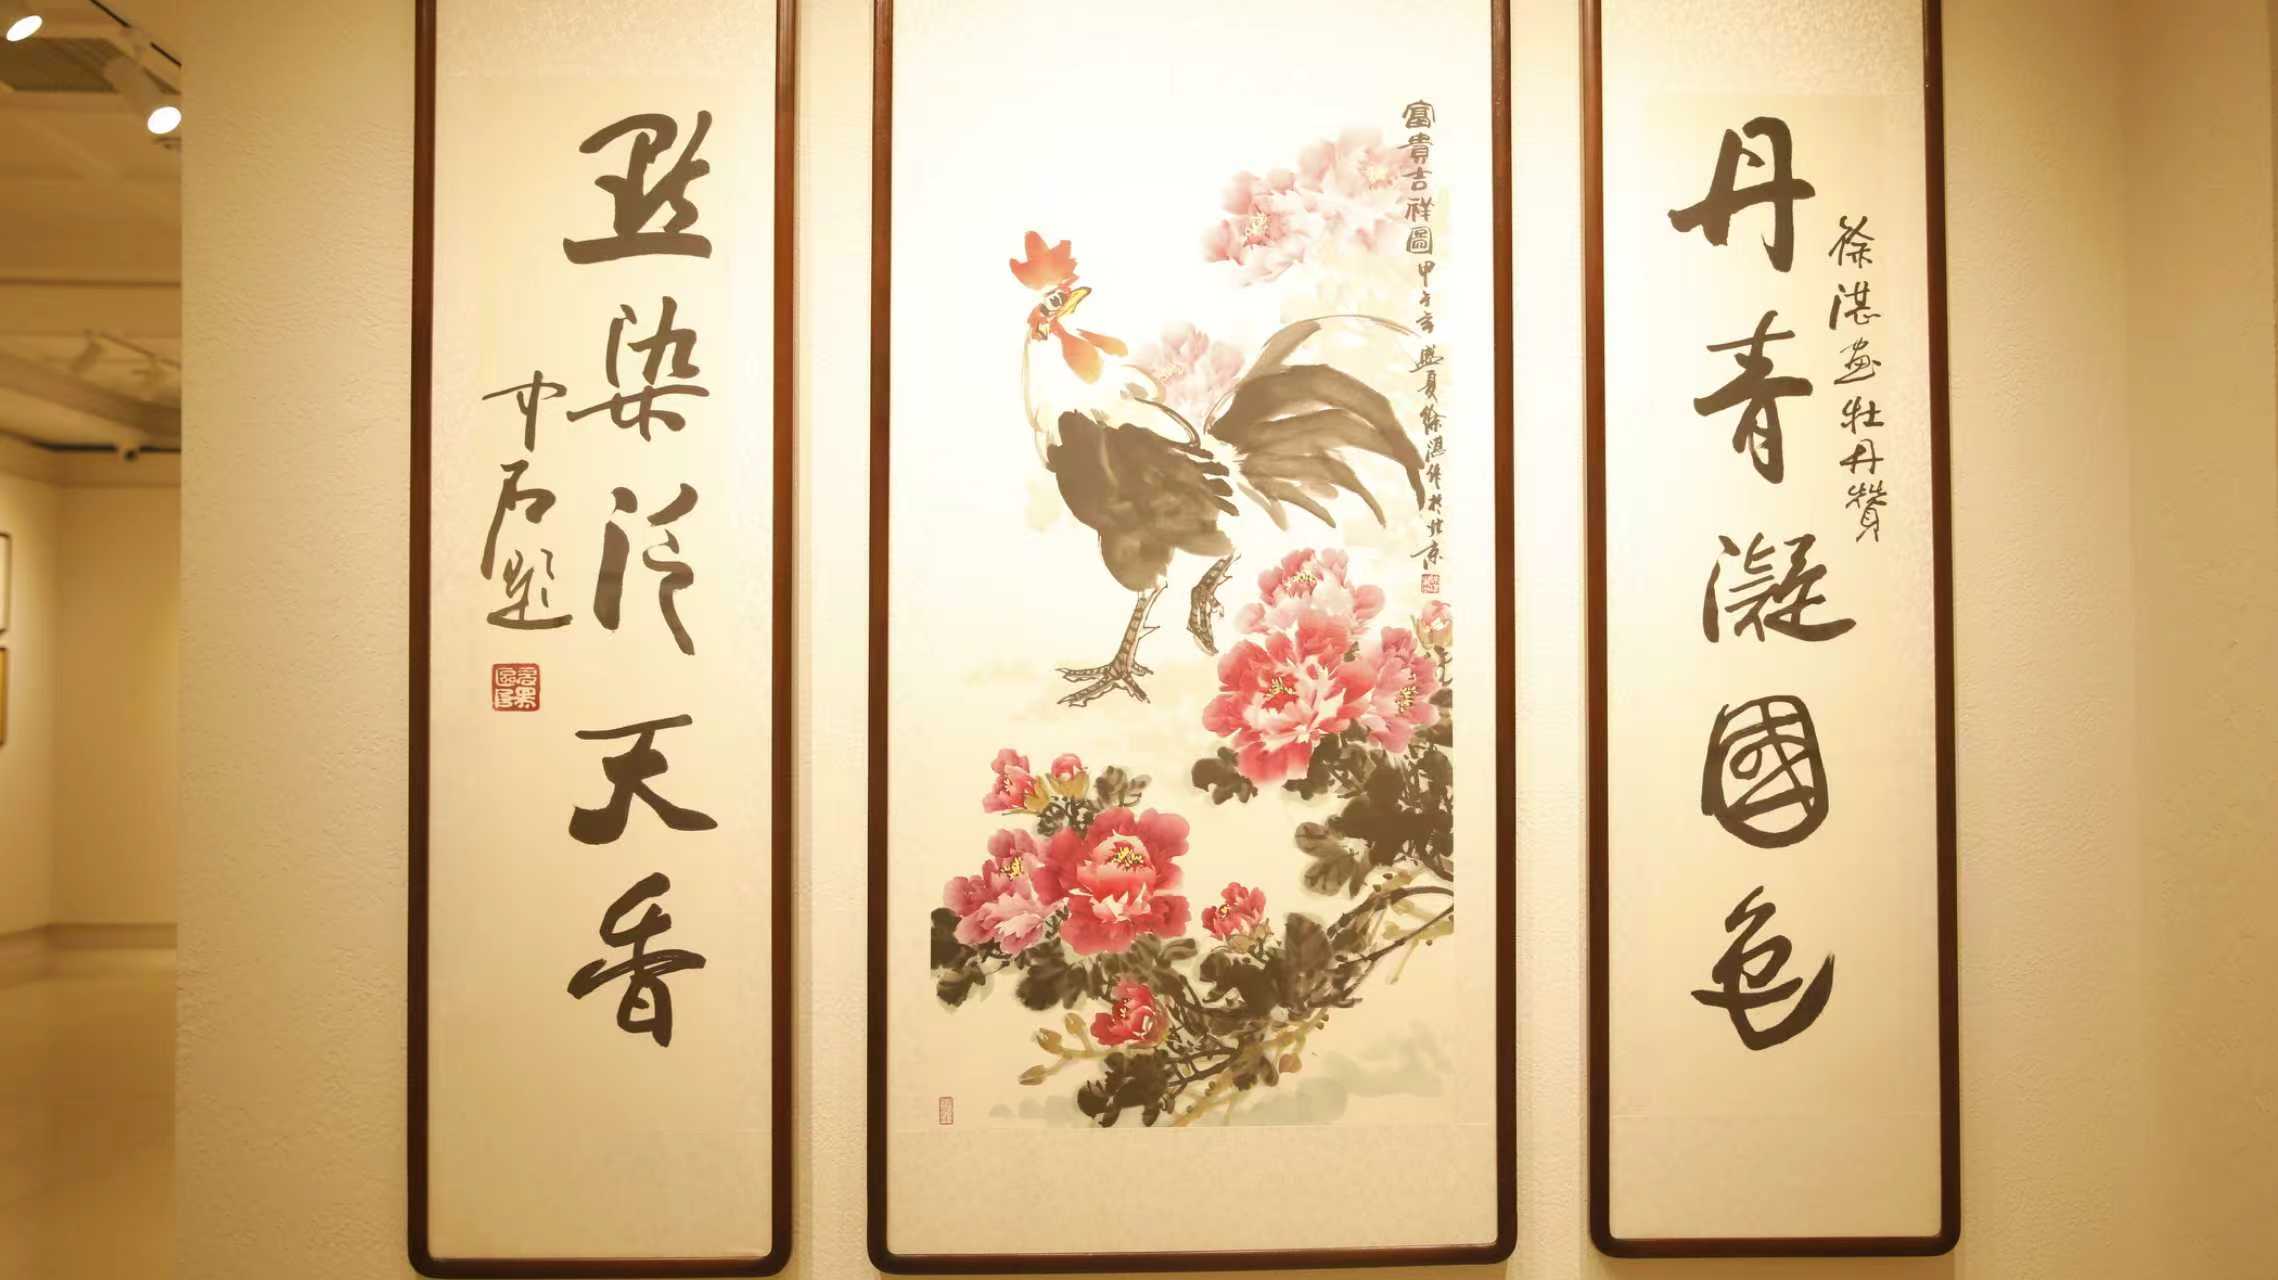 丹青凝國色
徐湛画牡丹贊
富貴吉祥圖甲午年盛夏徐湛作於北京
點染沁天香
中石題